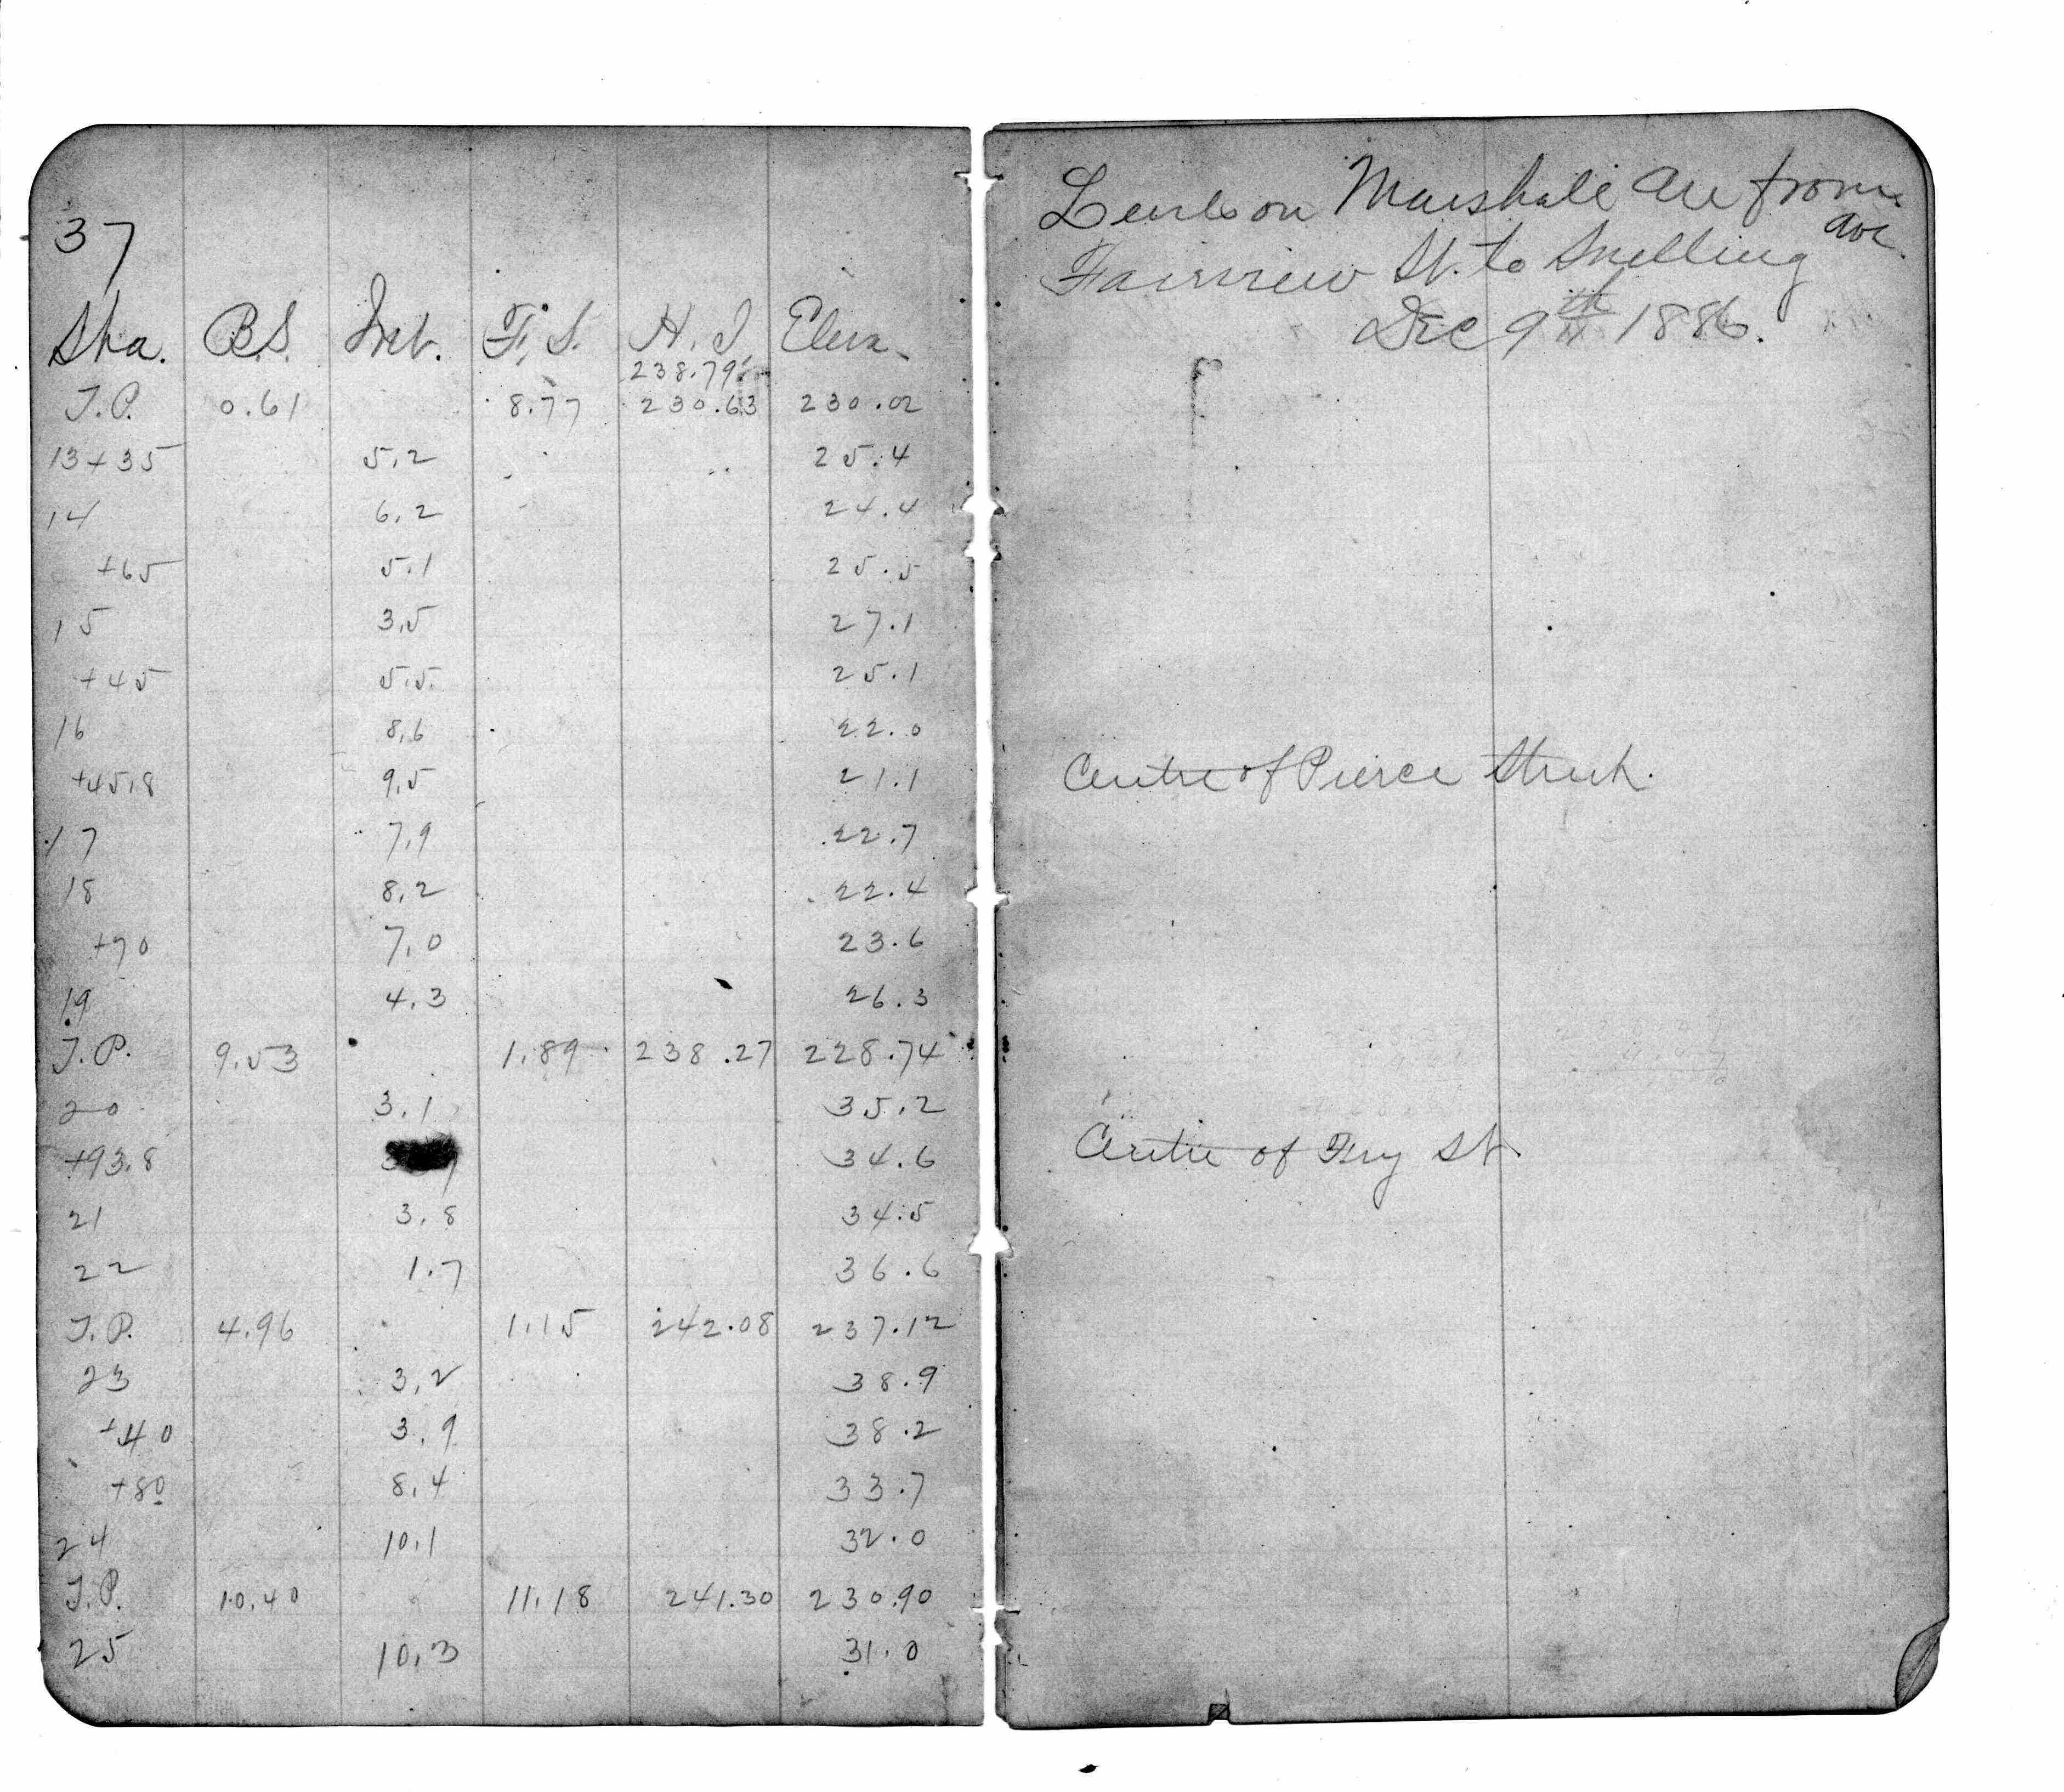 37
Sta. B.S. Int. F.S. H.I. Eleva.
238.79
T.P. 0.61 8.77 230.63 230.02
13+35 5.2 25.4
14 6.2 24.4
+65 5.1 25.5
15 3.5 27.1
+45 5.5 25.1
16 8.6 22.0
+45.8 9.5 21.1
17 7.9 22.7
18 8.2 22.4
+70 7.0 23.6
19 4.3 26.3
T.P. 9.53 1.89 238.27 228.74
20 3.1 35.2
+93.8 34.6
21 3.8 34.5
22 1.7 36.6
T.P. 4.96 1.15 242.08 237.12
23 3.2 38.9
+40 3.9 38.2
+80 8.4 33.7
24 10.1 32.0
T.P. 10.40 11.18 241.30 230.90
25 10.3 31.0
Levels on Marshall Ave from
Fairview St. to Snelling Ave
Dec 9th 1886.
Centre of Pierce Street.
Centre of Fry St.